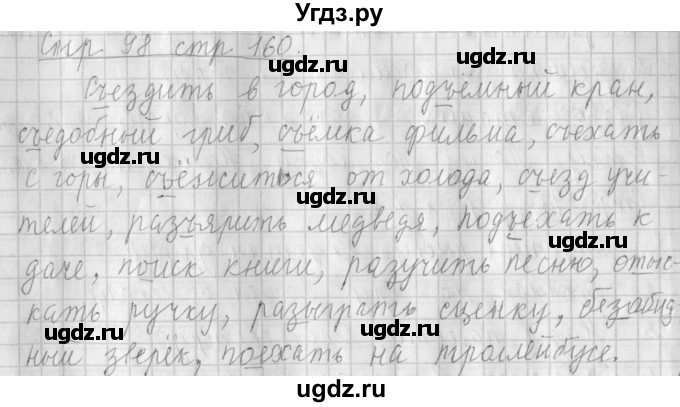 Угдз.ру
Стр 98 стр 160.
Съездить в город, подъёмный кран,
съедобный гриб, съёмка фильма, съехать
с горы, съёжиться от холода, съезд учи-
телей, разъярить медведя, подъехать к
даче, поиск книги, разучить песню, отыс-
кать ручку, разыграть сценку, безобид-
ный зверёк, поехать на троллейбусе.
ugdz.ru
ugdz.ru
ugdz.ru
ugdz.ru
ugdz.ru
ugdz.ru
ugdz.ru
ugdz.ru
ugdz.ru
ugdz.ru
ugdz.ru
ugdz.ru
ugdz.ru